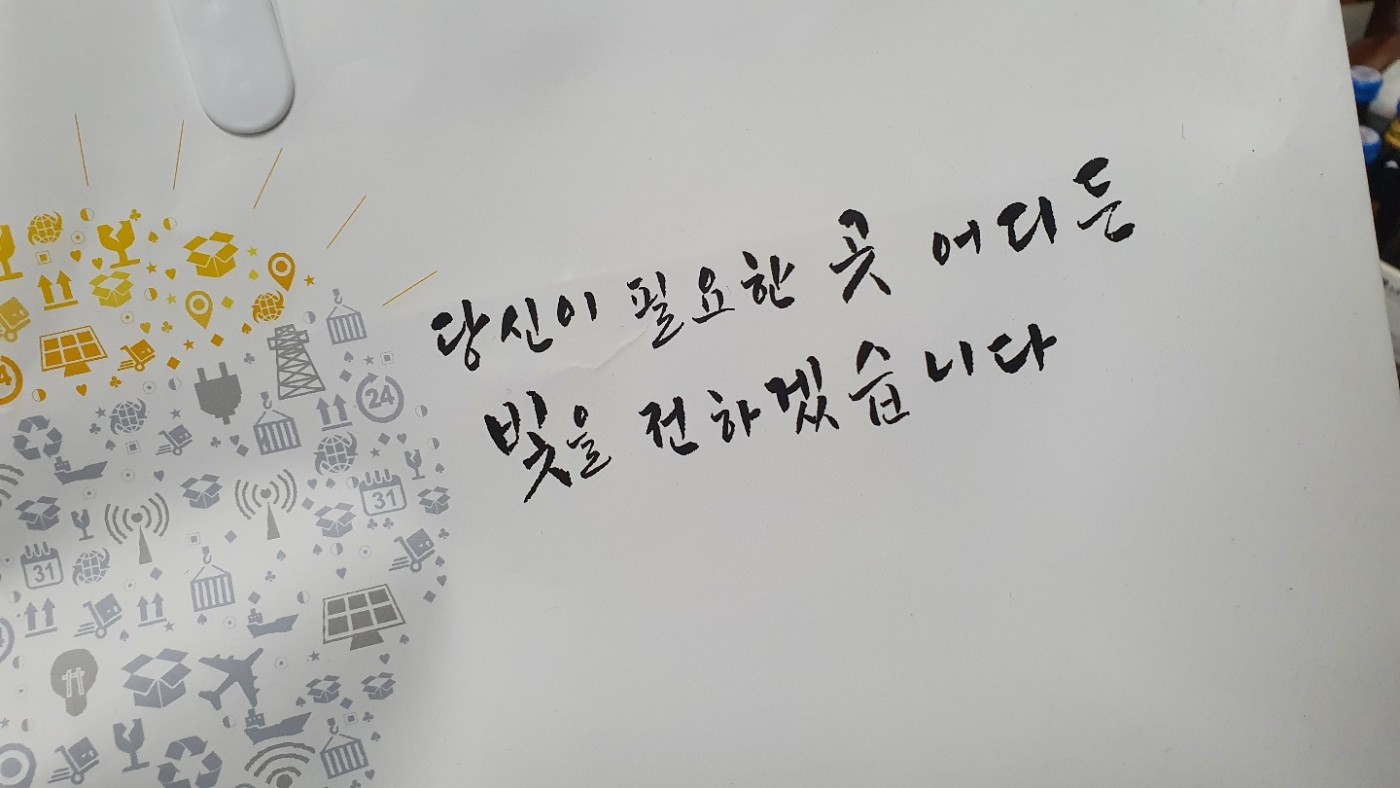 당신이 필요한 곳 어디든
빛을 전하겠습니다
24
31
31